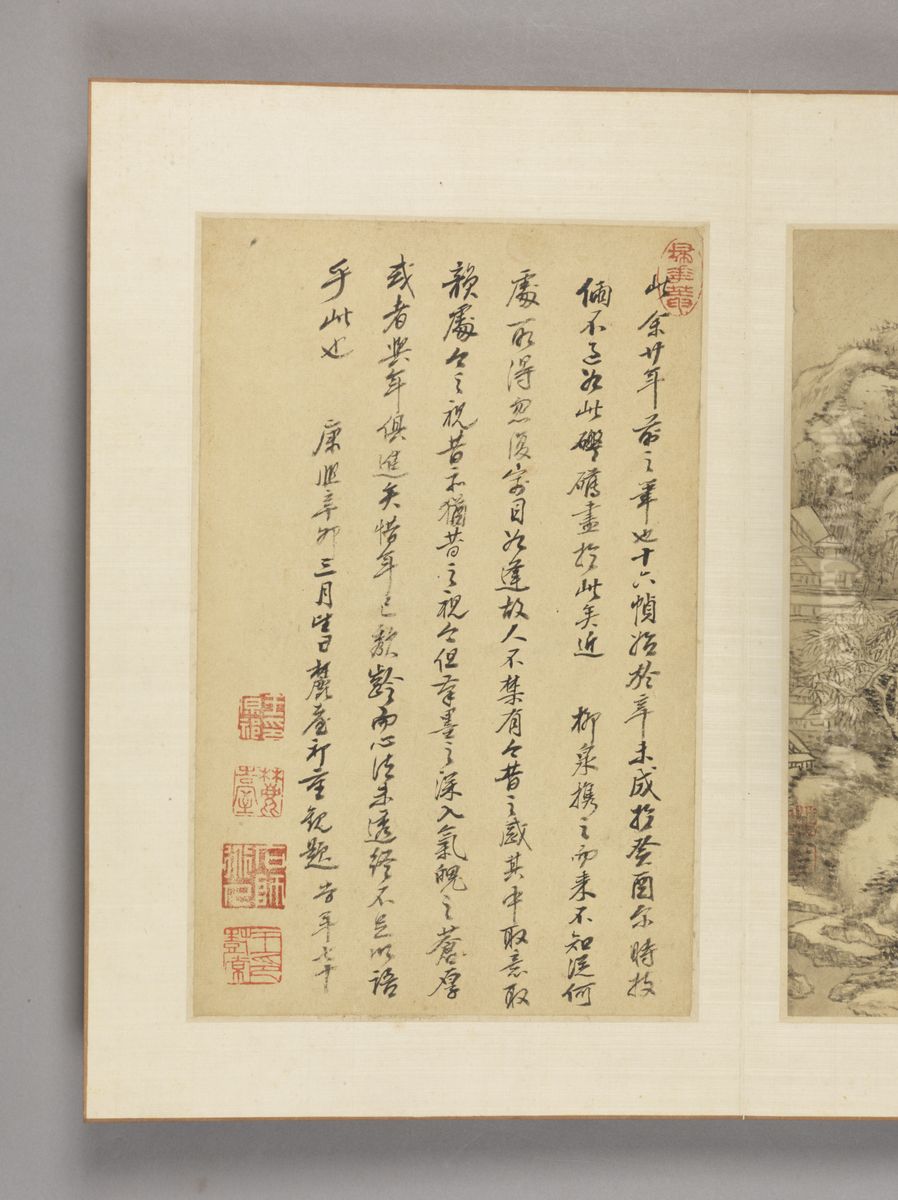 此余廿年前之筆也十六幀始於辛未成於癸酉尔時技
倆不過如此礬礡盡於此矣近 柳泉攜之而来不知從何
處所得忽復寓目如逢故人不禁有今昔之感其中取意取
韻處今之視昔亦猶昔之視今但筆墨之深入氣魄之蒼厚
或者與年俱進矣惜年已頽齡而心法未透終不足以語
乎此也 康熙辛卯三月望日麓臺祁重觀題 時年七十
王印原祁
麓臺
石師道人